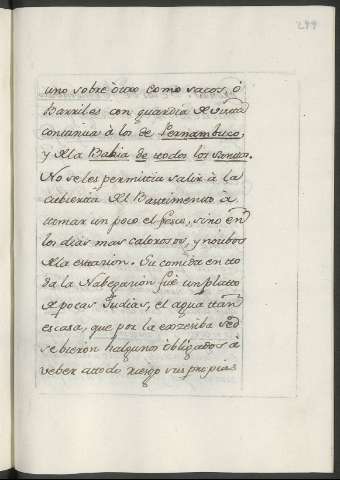 299
uno sobre òtro como sacos, ò
Barriles con guardia de vista
continua à los de Pernambuco,
y de la Bahia de todos los Santos.
No se les permittia salir à la
cubiertta del Basttimentto à
ttomar un poco el fresco, sino en
los dias mas calorosos, y
de la esttazion. Su comida en tto
da la Nabegazion fuè un platto
de pocas Judias, el agua ttan
escasa, que por la exzesiba sed
se bieron halgunos òbligados à
veber a ttodo riesgo sus propias